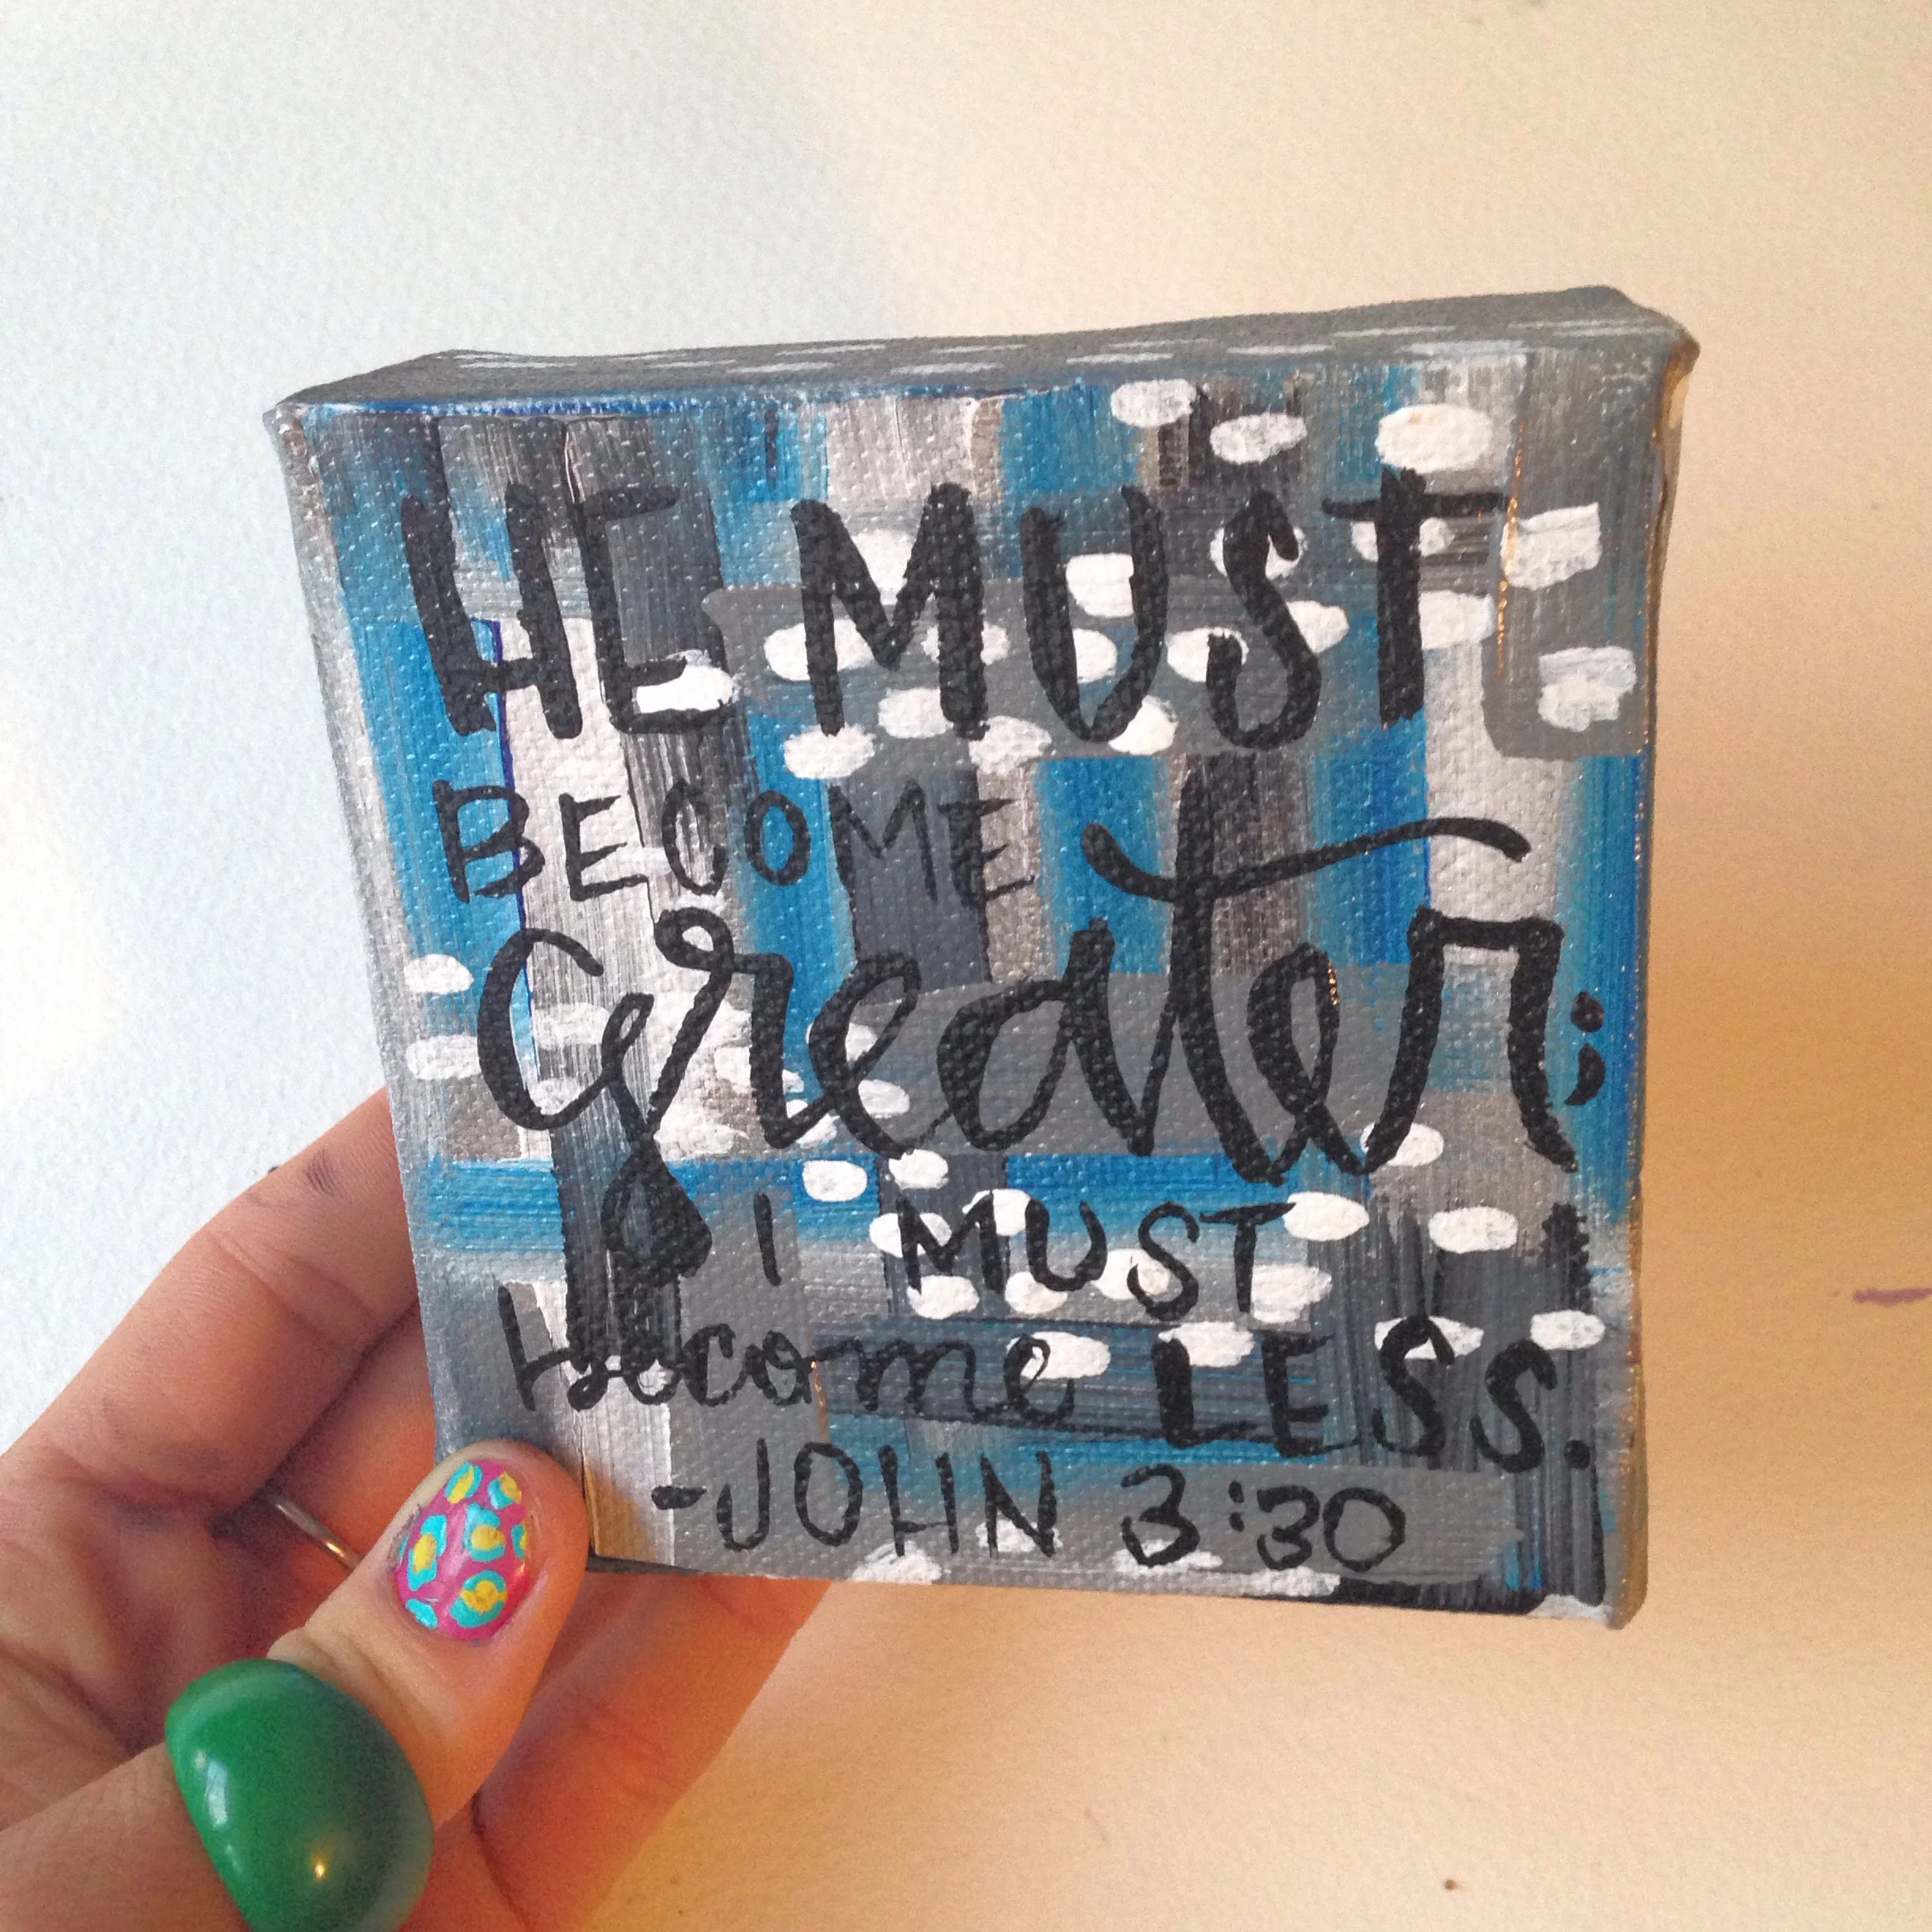 HE MUST
BECOME
Greater;
I MUST
become LESS.
-JOHN 3:30